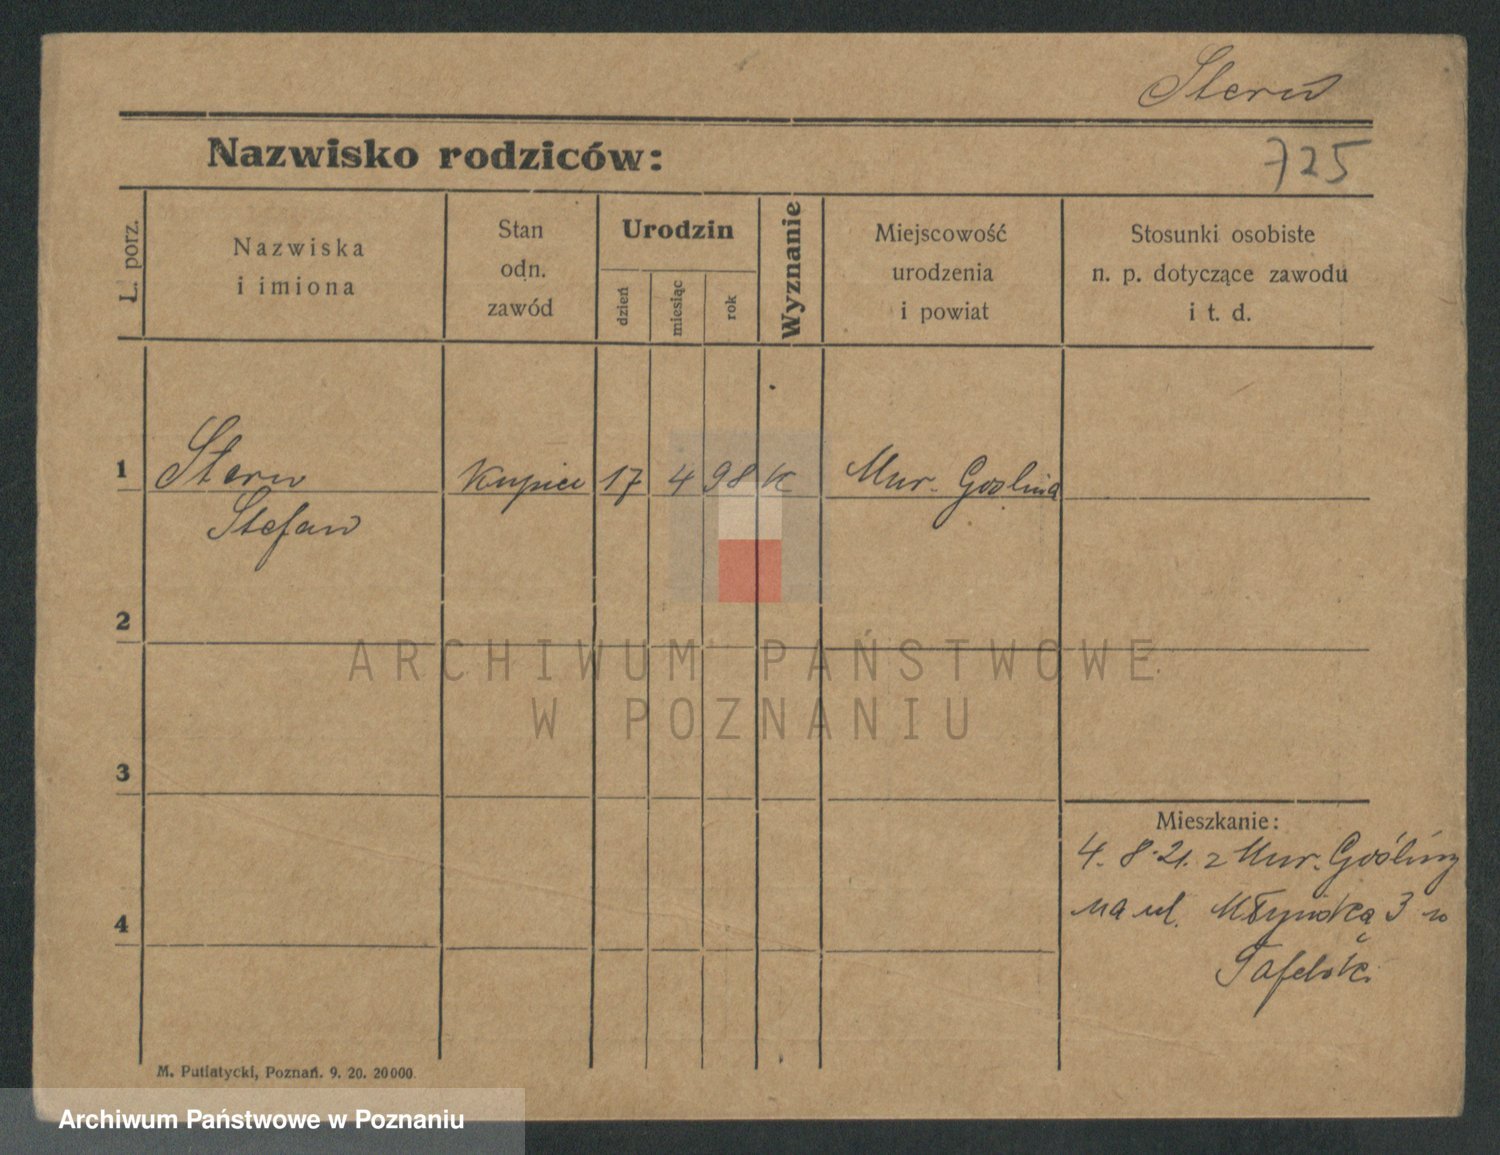 Stern
Nazwisko rodziców:
725
L. porz.
Nazwiska
i imiona
Stan
odn.
zawód
Urodzin
dzień
miesiąc
rok
Wyznanie
Miejscowość
urodzenia
i powiat
Stosunki osobiste
n. p. dotyczące zawodu
i t. d.
1
Stern
Kupiec
17
4
98
K
Mur. Goslina
Stefan
2
ARCHIWUM PAŃSTWOWE
W POZNANIU
3
Mieszkanie:
4. 8. 21. z Mur. Gośliny
na ul. Młyńską 3
4
M. Putiatycki, Poznań. 9. 20. 20000.
Archiwum Państwowe w Poznaniu